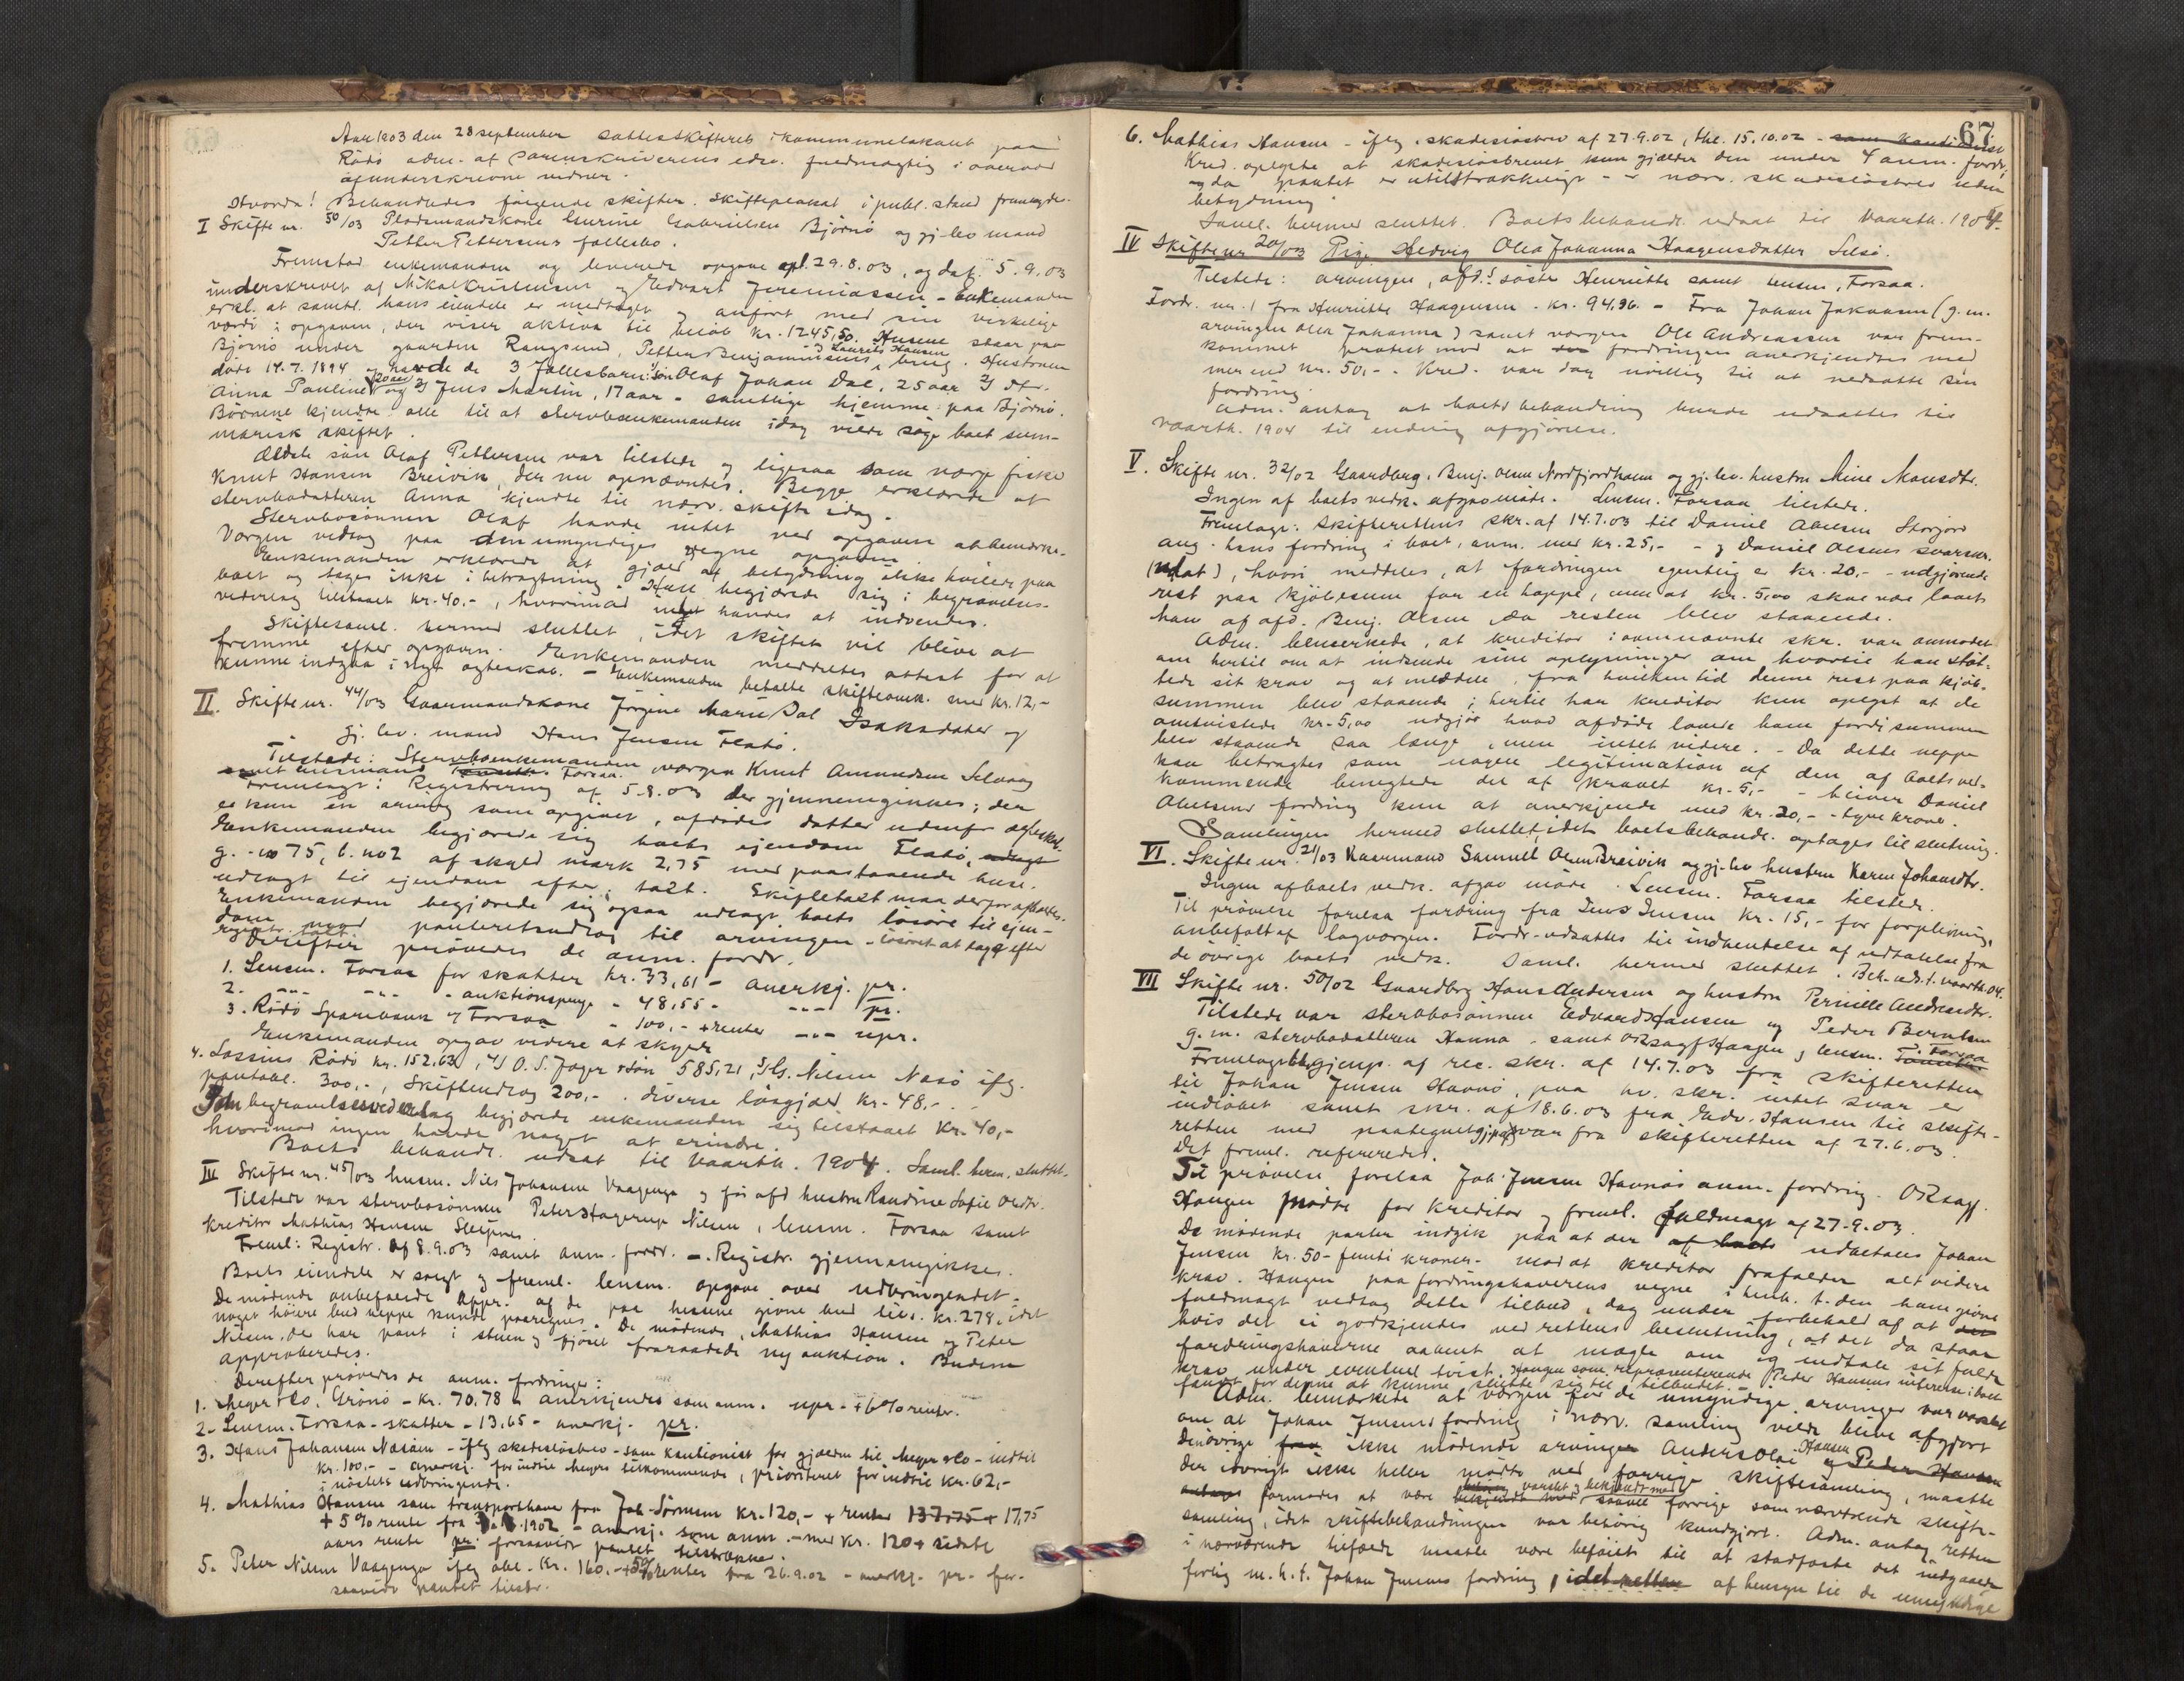 Aar 1903 den 28 september sattes skifteret i kommunelokalet paa
Rödö adm. af sorenskriverens edsv. fuldmægtig i overvær
af underskrevne vidner.
Hvorda! Behandledes fölgende skifter. Skifteplakat i publ. stand fremlagdes.
I Skifte nr. 50/03 Pladsmandskone Gurine Gabrielsen Björnö og gj. lev. mand
Petter Pettersens fællesbo.
Fremstod enkemanden og leverede opgave opl. 29.8.03, og dat. 5.9.03
underskrevet af Nikolai Kristensen og Edvart Jeremiassen - Enkemanden
erkl. at samtl. hans eiendele er medtaget og anfört med sin virkelige
værdi i opgaven, der viser aktiva til belöb kr. 1245,50. Husene staar paa
Björnö under gaarden Rangsund, Petter Benjaminsens og Laurits Hansens brug. Hustruen
döde 14.7.1894 og havde de 3 fællesbarn: 1) sön Olaf Johan Dal, 25 aar 2) dtr.
Anna Pauline 20 aar og 3) Jens Martin, 17 aar - samtlige hjemme paa Björnö.
Börnene kjendte alle til at stervboenkemanden idag vilde söge boet sum-
marisk skiftet.
Ældste sön Olaf Pettersen var tilstede og ligesaa som værge fisker
Knut Hansen Breivik, der nu opnævntes. Begge erklærede at
stervbodatteren Anna kjendte til nærv. skifte idag.
Stervbosönnen Olaf havde intet ved opgaven at bemærke.
Værgen vedtog paa den umyndiges vegne opgaven.
Enkemanden erklærede at gjæld af betydning ikke hviler paa
boet og tages ikke i betragtning. Han begjærede sig i begravelses-
vederlag tilstaaet kr. 40.-, hvorimod intet havdes at indvende.
Skiftesaml. hermed sluttet, idet skiftet vil blive at
fremme efter opgaven. Enkemanden meddeltes attest for at
kunne indgaa i nyt ægteskab. - Enkemanden betalte skifteomk. med kr. 12,-
II. Skifte nr. 44/03 Gaarmandskone Jörgine Marie Dal Isaksdatter og
gj. lev. mand Hans Jensen Flatö.
Tilstede: Sterboenkemanden værgen Knut Amundsen Selvaag
samt lensmand Forsaa.
Fremlagt: Registrering af 5.8.03 der gjennemgikkes; der
er kun én arving som opgivet, afdödes datter udenfor ægteskab.
Enkemanden begjærede sig boets ejendom Flatö,
g. no 75, b. no 2 af skyld mark 2,75 med paastaaende huse.
udlagt til ejendom efter takst. Skiftetakst maa derfor afholdes.
Enkemanden begjærede sig ogsaa udlagt boets lösöre til ejen-
dom mod panteretsudlæg til arvingen - lösöret at tage efter
registr. takst.
Derefter prövedes de anm. fordr.
1. Lensm. Forsaa for skatter kr. 33,61 - anerkj. pr.
2. -"- -"- - auktionspenge - 48,55 - -"- pr.
3. Rödö Sparebank v/ Forsaa - 100,- + renter -"- upr.
Enkemanden opgav videre at skyldte
4. Lossius Rödö kr. 152,63, 4) O. S. Jager & Sön 585,21, 5) G. Nilsen Nesö ifg.
pantobl. 300,-, Skifteudlæg 200,-. diverse lösgjæld kr. 48,-.
Som begravelsesvederlag begjærede enkemanden sig tilstaaet kr. 40,-
hvorimod ingen havde noget at erindre.
Boets behandl. udsat til Vaarth. 1904. Saml. herm. sluttet.
III Skifte nr. 45/03 husm. Nils Johansen Vaagenga og för afd. hustru Randine Sofie Olsdtr.
Tilstede var sterbosönnen Peter Hagerup Nilsen, lensm. Forsaa samt
kreditor Mathias Hansen Sleipnes.
Freml: Registr. af 8.9.03 samt anm. fordr. -. Registr. gjennemgikkes.
Boets eiendele er solgt og freml. lensm. opgave over udbringendet.
De mödende anbefalede appr. af de paa husene givne bud tils. kr. 278, idet
noget höiere bud neppe kunde paaregnes. De mödende, Mathias Hansen og Peter
Nilsen, de har pant i stuen og fjöset fraraadede ny auktion. Budene
approberedes.
Derefter prövedes de anm. fordringer:
1. Meyer & Co, Grönö - kr. 70.78 - anerkjendes som anm. upr. + 6% renter.
2. Lensm. Forsaa - skatter - 13,65 - anerkj. pr.
3. Hans Johansen Næsöen - ifg skadeslösbrev - som kautionist for gjælden til Meyer & Co - indtil
kr. 100,- - anerkj. for indtil Meyers tilkommende, prioriteret for indtil kr. 62,-
i udbringende.
4. Mathias Hansen som transporthaver fra Joh. Sörensen kr. 120,- + renter 137,75 + 17,75
+ 5% rente fra 1902 - anerkj. som anm. - med kr. 120 + sidste
aars rente pr. forsaavidt pantet tilstrækker.
5. Peter Nilsen Vaagenga ifg obl. kr. 160,- + 5% renter fra 26.9.02 - anerkj. pr. for-
saavidt pantet tilstr.
67
6. Mathias Hansen - ifölg. skadeslösbrev af 27.9.02, thl. 15.10.02 - som kautionist
Kred. oplyste at skadeslösbrevet kun gjælder den under 4 anm. fordr.,
og da pantet er utilstrækkeligt - er nærv. skadeslösbrev uden
betydning.
Saml. hermed sluttet. Boets behandl. udsat til Vaarth. 1904.
IV Skifte nr. 20/03 Pige Hedvig Olea Johanna Haagensdatter Selsö.
Tilstede: arvingen, afd.s söster Henriette samt lensm. Forsaa.
Fordr. nr. 1 fra Henriette Haagensen - kr. 94,96. - Fra Johan Jakobsen (g. m.
arvingen Olea Johanna) samt værgen Ole Andreassen var frem-
kommet protest mod at fordringen anerkjendtes med
mer end kr. 50,-. Kred. var dog uvillig til at nedsætte sin
fordring.
Adm. antog at boets behandling burde udsættes til
vaarth. 1904 til endelig afgjörelse.
V. Skifte nr. 32/02 Gaardbrg. Benj. Olsen Nordfjordholm og gj. lev. hustru Mine Monsdtr.
Ingen af boets vedk. afgav möde. Lensm. Forsaa tilstede.
Fremlagt: Skifterettens skr. af 14.7.03 til Daniel Abelsen Storjord
ang. hans fordring i boet, anm. med kr. 25,- - og Daniel Olsens svarskr.
(udat), hvori meddeles, at fordringen egentlig er kr. 20,- - udgjörende
rest paa kjöbesum for en hoppe, men at kr. 5,00 skal være lovet
ham af afd. Benj. Olsen da resten blev staaende.
Adm. bemerkede, at kreditor i omnævnte skr. var anmodet
om hertil om at indsende sine oplysninger om hvortil han stöt-
tede sit krav og at meddele, fra hvilken tid denne rest paa kjöb-
summen blev staaende; hertil har kreditor kun oplyst at de
omtvistede kr. 5,00 udgjör hvad afdöde lovede ham fordi summen
blev staaende saa længe, men intet videre. - Da dette neppe
kan betragtes som nogen legitimation af den af boets ved-
kommende benegtede del af kravet kr. 5,- - bliver Daniel
Abelsens fordring kun at anerkjende med kr. 20,- - tyve kroner.
Samlingen hermed sluttet, idet boets behandl. optages til slutning.
VI. Skifte nr. 21/03 Kaarmand Samuel Olsen Breivik og gj. lev. hustru Karen Johansdtr.
Ingen af boets vedk. afgav möde. Lensm. Forsaa tilstede.
Til prövelse forelaa fordring fra Jens Jensen kr. 15,- for forpleining,
anbefalt af lagværgen. Fordr. udsattes til indhentelse af udtalelse fra
de övrige boets vedk. Saml. hermed sluttet. Beh. uds. t. vaarth. 04.
VII Skifte nr. 50/02 Gaardbrg Hans Andersen og hustru Pernille Andreasdtr.
Tilstede var sterbosönnen Edvard Hansen og Peder Berntsen
g. m. sterbodatteren Hanna - samt OR sagf Haagen og lensm. Forsaa
Fremlagt gjenp. af rec. skr. af 14.7.03 fra skifteretten
til Johan Jensen Havnö, paa hv. skr. intet svar er
indlöbet samt skr. af 18.6.03 fra Edv. Hansen til skifte-
retten med paategnet gjenp. svar fra skifteretten af 27.6.03.
Det freml. refereredes.
Til prövelse forelaa Joh. Jensen Havnös anm. fordring. OR sagf.
Haugen mödte for kreditor og freml. fuldmagt af 27.9.03.
De mödende parter indgik paa at der af boets udbetales Johan
Jensen kr. 50 - femti kroner - mod at kreditor frafalder alt videre
krav. Haugen paa fordringshaverens vegne i henh. t. den ham givne
fuldmagt vedtog dette tilbud, dog under forbehold af at
hvis det ei godkjendes ved rettens beslutning, at det da staar
fordringshaverne aabent at mægle om og indtale sit fulde
krav under eventuel tvist. Haugen som repræsenterende Peder Hansens interesse i boet
fandt for denne at kunne slutte sig til tilbudet. -
Adm. bemærkede at værgen for de umyndige arvinger var varslet
om at Johan Jensens fordring i nærv. samling vilde blive afgjort
Den övrige ikke mödende arvinger Anders Olai Hansen og Peder Hansen
der iövrigt ikke heller mödte ved forrige skiftesamling, maatte
formodes at være varslet og bekjendt med saavel forrige som nærværende skifte-
samling, idet skiftebehandlingen var behörig kundgjort. Adm. antog retten
i nærværende tilfælde maatte være beföiet til at stadfæste det indgaaede
forlig m. h. t. Johan Jensens fordring, idet retten af hensyn til de umyndige